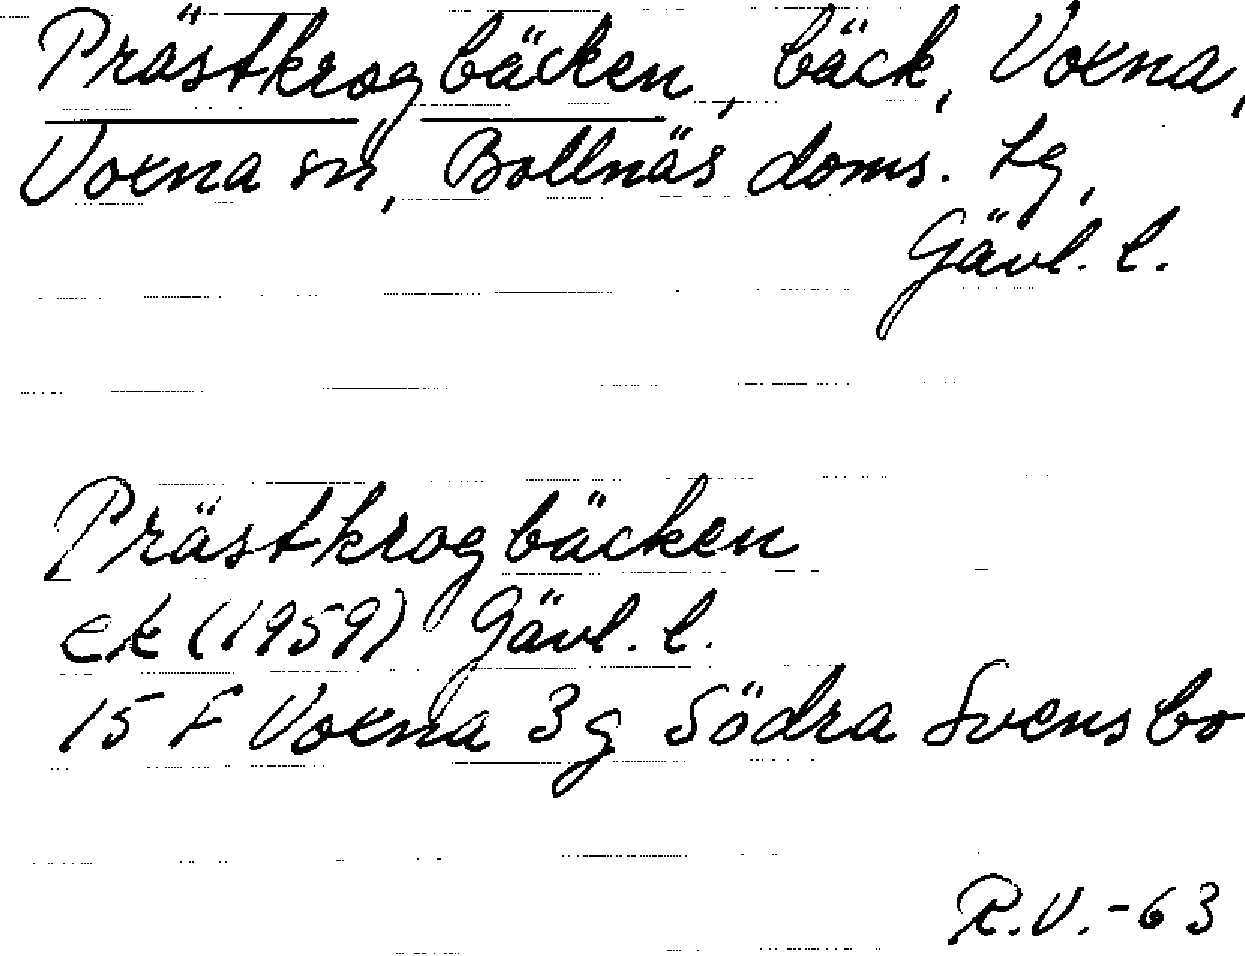 Prästkrogbäcken, bäck, Voxna,
Voxna sn, Bollnäs doms. tg,
Gävl. l.
Prästkrogbäcken
ek (1959) Gävl. l.
15 F Voxna 3g Södra Svensbo
R.V.-63